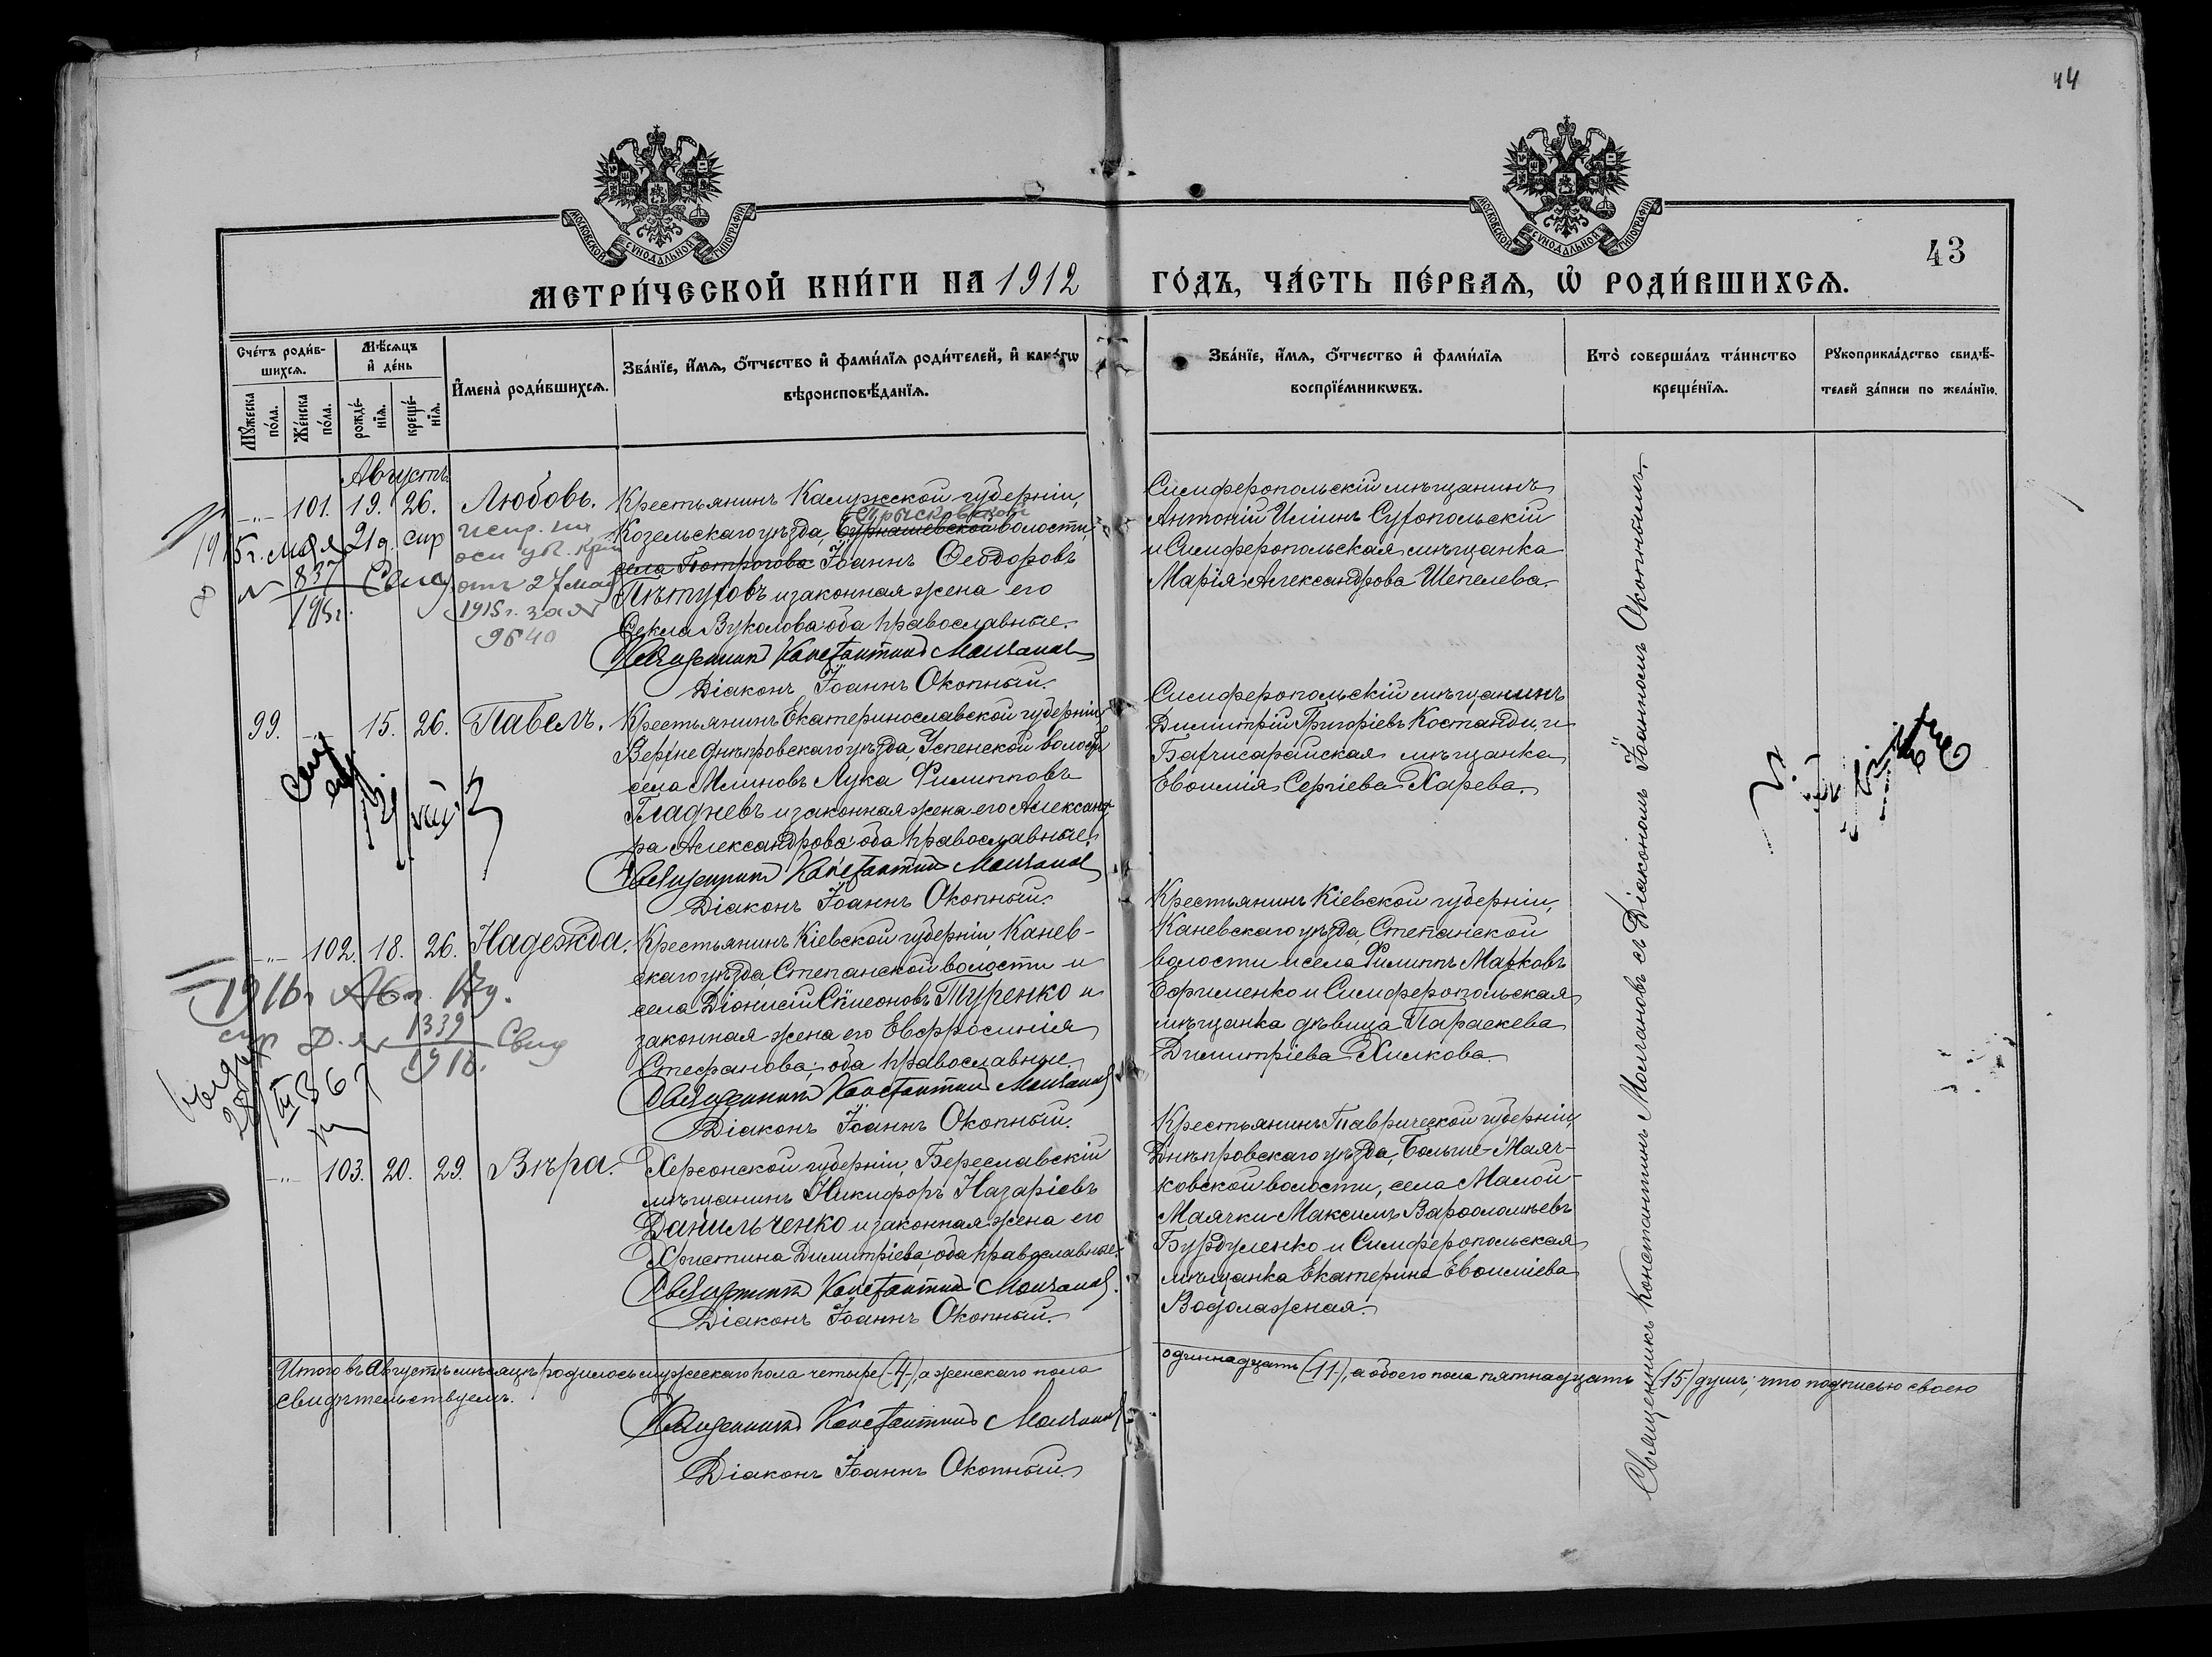 44
МОСКОВСКОЙ СѴНОДАЛЬНОЙ ТИПОГРАФІИ
МОСКОВСКОЙ СѴНОДАЛЬНОЙ ТИПОГРАФІИ
43
МЕТРИ́ЧЕСКОЙ КНИ́ГИ НА 1912 ГО́ДЪ, ЧА́СТЬ ПЕ́РВАѦ, Ѡ҆ РОДИ́ВШИХСѦ.
Сче́тъ роди́в-
шихсѧ.
Мꙋ́жеска
по́ла.
Же́нска
по́ла.
Мѣ́сѧцъ
и҆ де́нь
рожде́-
нїѧ.
креще́-
нїѧ.
И҆мена̀ роди́вшихсѧ.
Зва́нїе, и҆́мѧ, ѻ҆́тчество и҆ фами́лїѧ роди́телей, и҆ како́гѡ
вѣроисповѣ́данїѧ.
Зва́нїе, и҆́мѧ, ѻ҆́тчество и҆ фами́лїѧ
воспрїе́мникѡвъ.
Кто̀ соверша́лъ та́инство
креще́нїѧ.
Рꙋкоприкла́дство свидѣ́-
телей за́писи по жела́нїю.
Августъ
-"- 101. 19. 26. Любовь.
Крестьянинъ Калужской губерніи,
Прысковской
Козельскаго уѣзда, Бурнашевской волости,
села Потросова Іоаннъ Ѳеодоровъ
Пѣтуховъ и законная жена его
Ѳекла Вуколова: оба православные.
Священникъ Константинъ Молчановъ
Діаконъ Іоаннъ Окопный.
Симферопольскій мѣщанинъ
Антоній Иліинъ Сухопольскій
и Симферопольская мѣщанка
Марія Александрова Шепелева.
1915 г. мая 21 д. спр
№ 837
1915 г.
Свид.
испр. на
осн ук.
отъ 27 мая
1915 г. за №
9640
99. -"- 15. 26. Павелъ.
Крестьянинъ Екатеринославской губерніи
Верхнеднѣпровскаго уѣзда, Успенской волости
села Млиновъ Лука Филипповъ
Гладневъ и законная жена его Александ-
ра Александрова: оба православные.
Священникъ Константинъ Молчановъ
Діаконъ Іоаннъ Окопный.
Симферопольскій мѣщанинъ
Димитрій Григоріевъ Костанди, и
Бахчисарайская мѣщанка
Евѳимія Сергіева Харева.
-"- 102. 18. 26. Надежда.
Крестьянинъ Кіевской губерніи, Канев-
скаго уѣзда, Степанской волости и
села Діонисій Сѵмеоновъ Туренко и
законная жена его Евфросинія
Стефанова; оба православные.
Священникъ Константинъ Молчановъ
Діаконъ Іоаннъ Окопный.
Крестьянинъ Кіевской губерніи,
Каневскаго уѣзда, Степанской
волости и села Филиппъ Марковъ
Ефрименко и Симферопольская
мѣщанка дѣвица Параскева
Димитріева Хилкова.
1916 г Авг.
1339
1916.
Свид
-"- 103. 20. 29. Вѣра.
Херсонской губерніи, Береславскій
мѣщанинъ Никифоръ Назаріевъ
Данильченко и законная жена его
Христина Димитріева; оба православные.
Священникъ Константинъ Молчановъ.
Діаконъ Іоаннъ Окопный.
Крестьянинъ Таврической губерніи,
Днѣпровскаго уѣзда, Больше-Маяч-
ковской волости, села Малой-
Маячки Максимъ Варѳоломѣевъ
Бурдуленко и Симферопольская
мѣщанка Екатерина Евѳиміева
Водолажская.
Священникъ Константинъ Молчановъ съ Діакономъ Іоанномъ Окопнымъ.
Итого въ Августѣ мѣсяцѣ родилось мужескаго пола четыре (-4-), а женскаго пола одиннадцать (11-), а обоего пола пятнадцать (15-) душъ; что подписью своею
свидѣтельствуемъ.
Священникъ Константинъ Молчановъ
Діаконъ Іоаннъ Окопный.